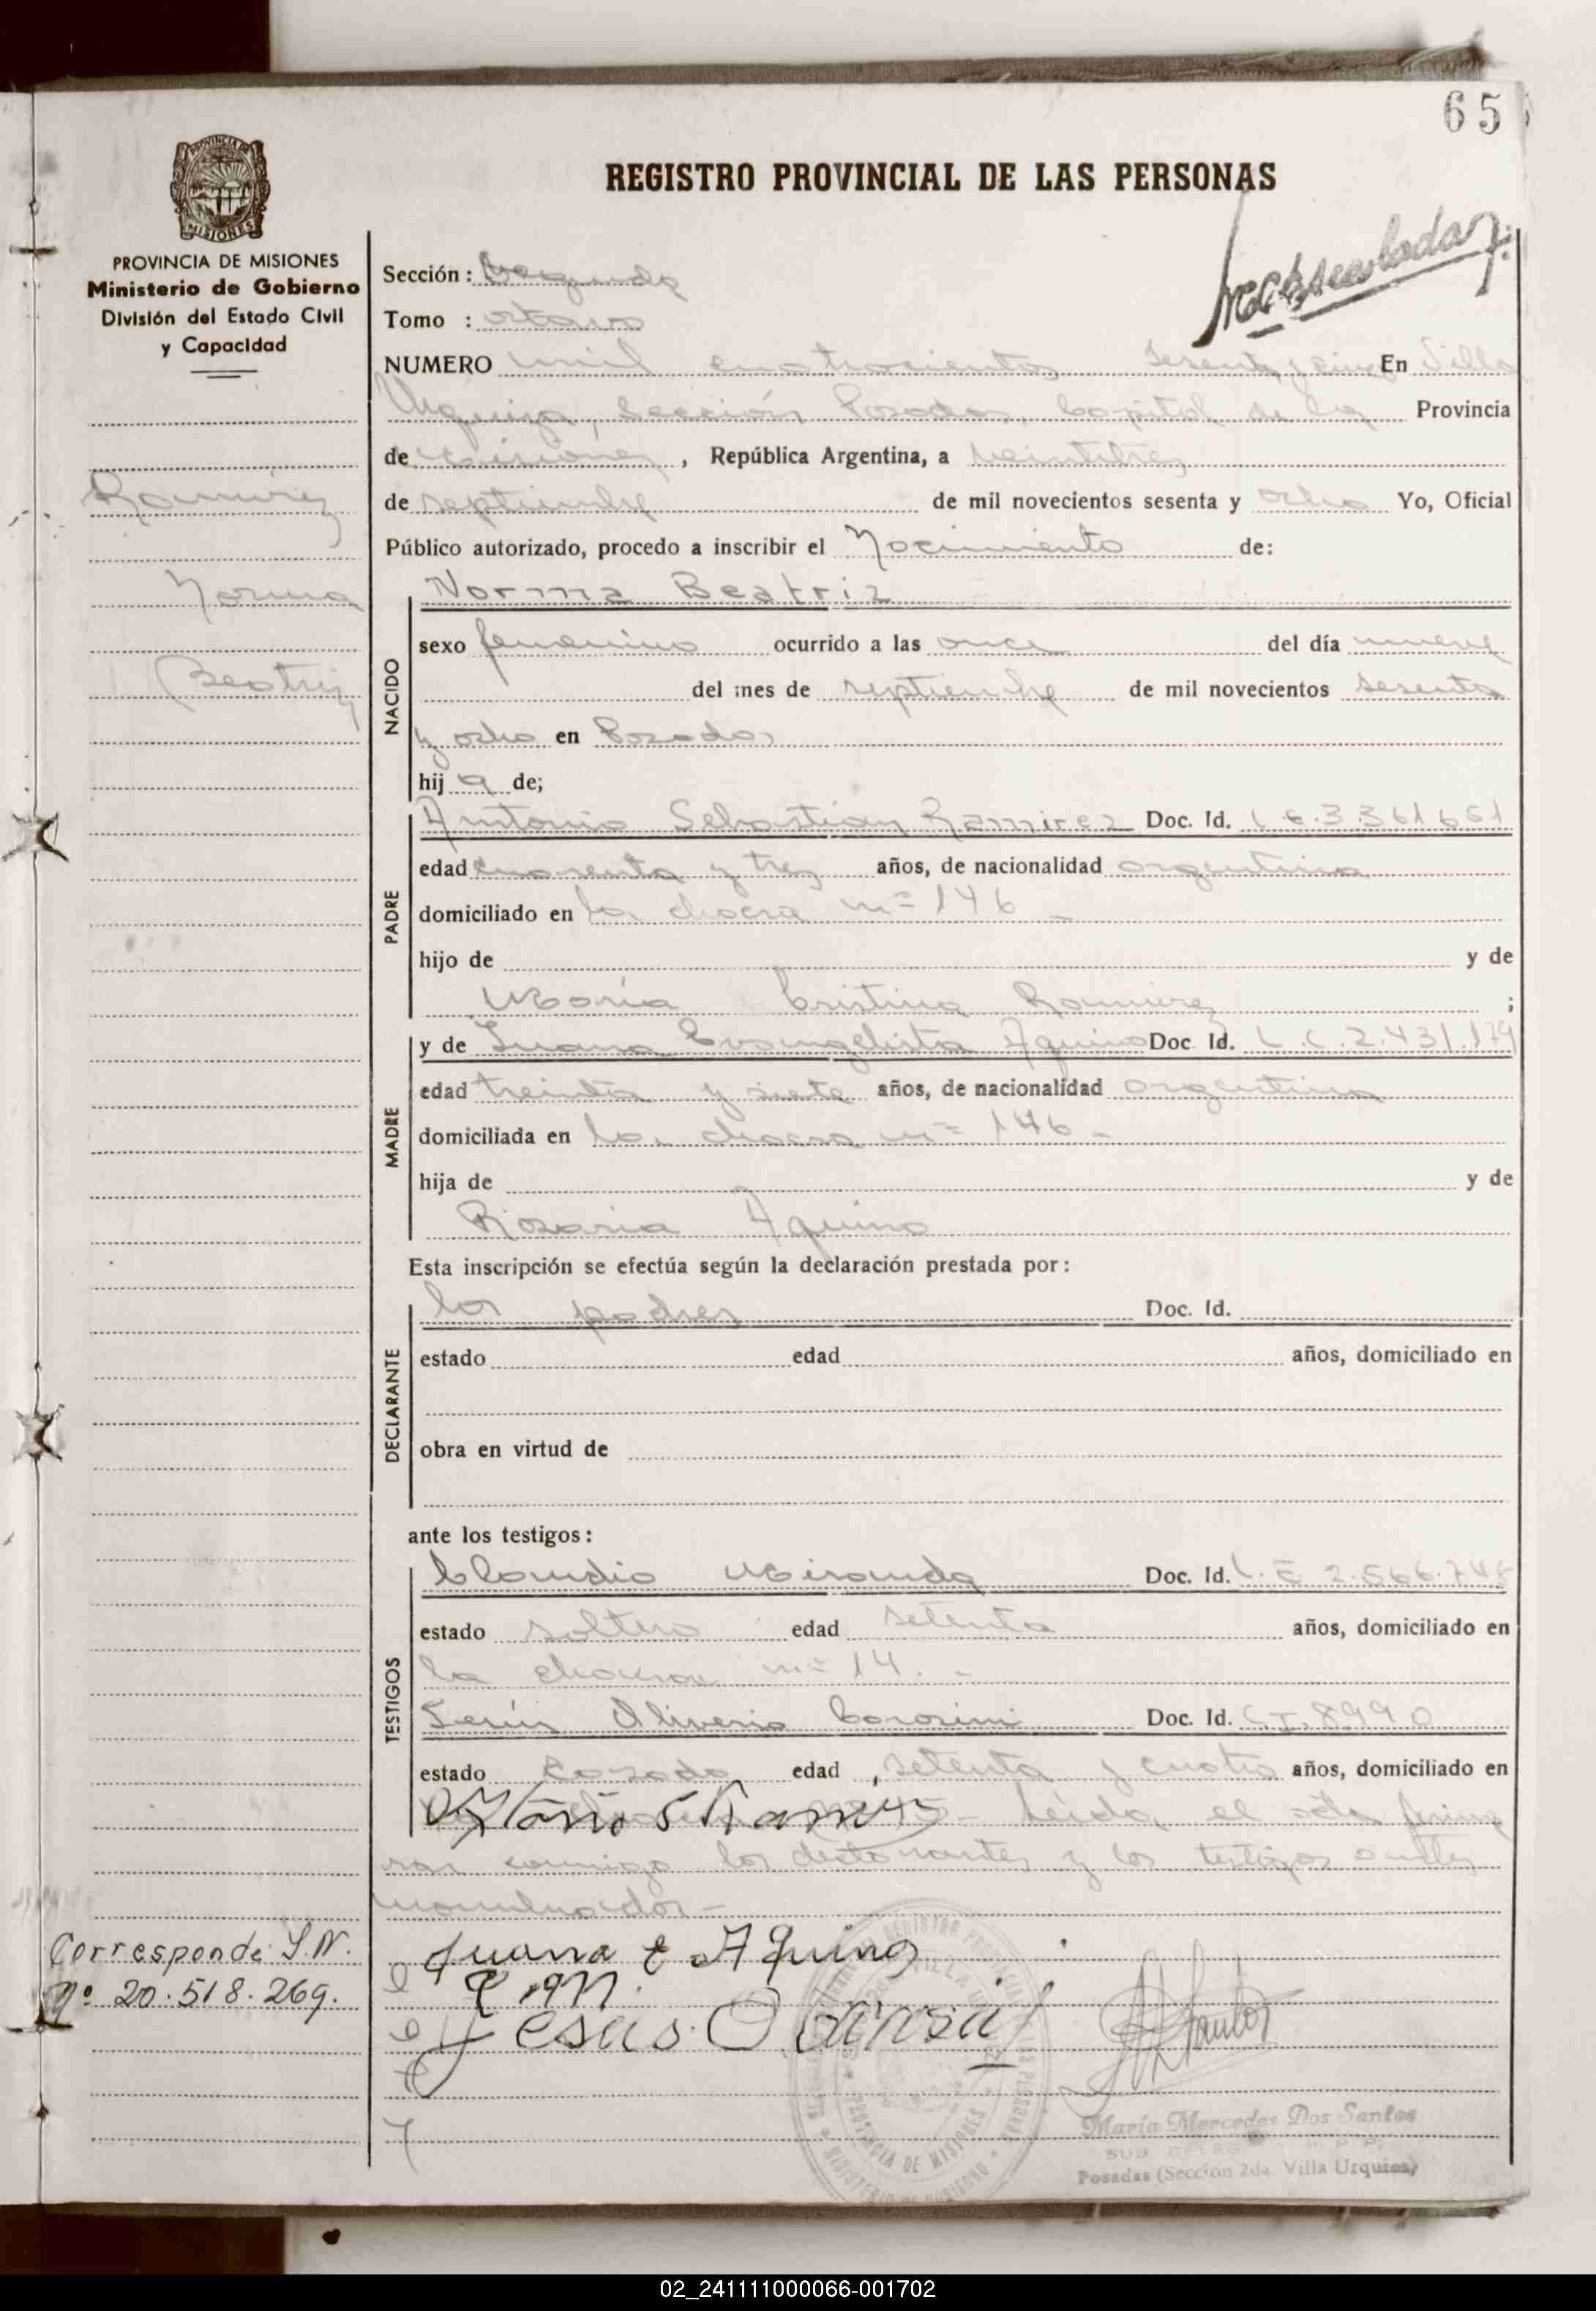 65
PROVINCIA DE
MISIONES
REGISTRO PROVINCIAL DE LAS PERSONAS
PROVINCIA DE MISIONES
Ministerio de Gobierno
División del Estado Civil
y Capacidad
Sección : Segunda
Tomo : octavo
NUMERO mil cuatrocientos sesenta y cinco En Villa
Urquiza, Sección Posadas, Capital de la Provincia
de Misiones, República Argentina, a veintitres
de septiembre de mil novecientos sesenta y ocho Yo, Oficial
Público autorizado, procedo a inscribir el Nacimiento de:
Ramirez
Norma
Beatriz
NACIDO
Norma Beatriz
sexo femenino ocurrido a las once del día nueve
del mes de septiembre de mil novecientos sesenta
y ocho en Posadas
hij a de;
PADRE
Antonio Sebastian Ramirez Doc. Id. L.E. 3.361.651
edad cuarenta y tres años, de nacionalidad argentina
domiciliado en la chacra nº 146 -
hijo de y de
María Cristina Ramirez ;
MADRE
y de Juana Evangelista Aquino Doc. Id. L.C. 2.431.179
edad treinta y siete años, de nacionalidad argentina
domiciliada en la chacra nº 146 -
hija de y de
Rosaria Aquino
Esta inscripción se efectúa según la declaración prestada por:
DECLARANTE
los padres Doc. Id.
estado edad años, domiciliado en
obra en virtud de
ante los testigos:
TESTIGOS
Claudio Miranda Doc. Id. L.E 2.566.748
estado soltero edad setenta años, domiciliado en
la chacra nº 14. -
Jesús Oliverio Doc. Id. C.I. 8990
estado casado edad setenta y cuatro años, domiciliado en
Leída el acta firma
ran conmigo los declarantes y los testigos antes
nombrados -
Corresponde I.N.
Nº 20.518.269.
Juana E Aquino
Jesus O
María Mercedes Dos Santos
Posadas (Sección 2da. Villa Urquiza)
PROVINCIA DE MISIONES
02_241111000066-001702